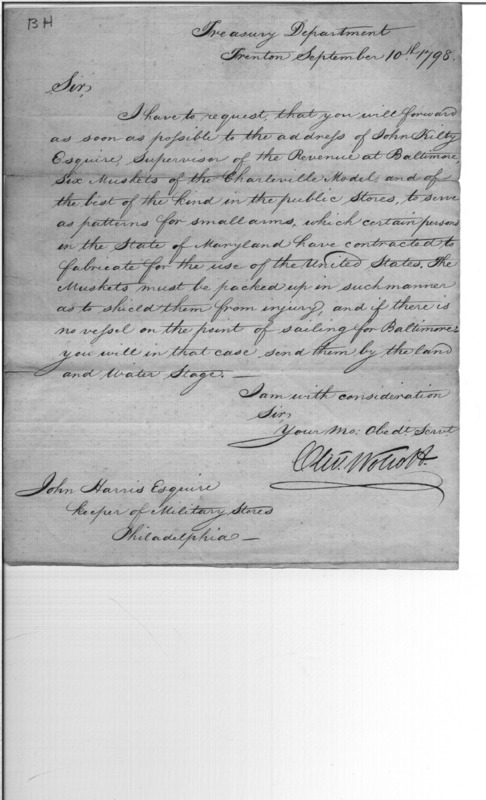 BH
Treasury Department
Trenton September 10th 1798.
Sir,
I have to request, that you will forward
as soon as possible to the address of John Kilty
Esquire, Supervisor of the Revenue at Baltimore,
Six Muskets of the Charleville Model and of
the best of the kind in the public Stores, to serve
as patterns for small arms, which certain persons
in the State of Maryland have contracted to
fabricate for the use of the United States. The
Muskets must be packed up in such manner
as to shield them from injury, and if there is
no vessel on the point of sailing for Baltimore
you will in that case send them by the land
and Water Stage. —
I am with consideration
Sir,
Your Mo: Obedt Servt
Oliv. Wolcott.
John Harris Esquire
Keeper of Military Stores
Philadelphia —